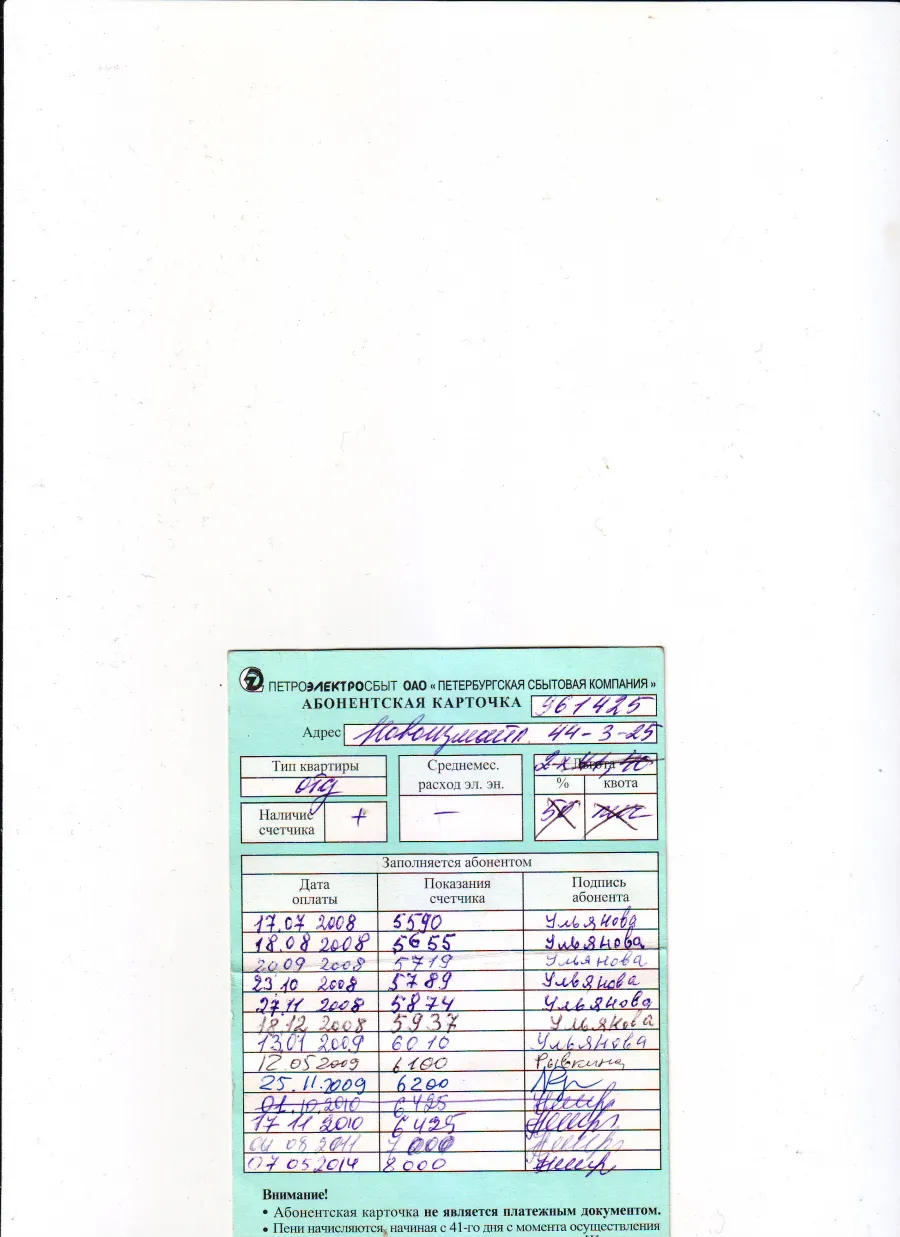 ПЕТРОЭЛЕКТРОСБЫТ ОАО « ПЕТЕРБУРГСКАЯ СБЫТОВАЯ КОМПАНИЯ »
АБОНЕНТСКАЯ КАРТОЧКА 961425
Адрес Новоизмайл. 44-3-25
Тип квартиры
отд
Наличие счетчика +
Среднемес. расход эл. эн.
—
Льгота
% квота
50
Заполняется абонентом
Дата оплаты Показания счетчика Подпись абонента
17.07 2008 5590 Ульянова
18.08 2008 5655 Ульянова
20.09 2008 5719 Ульянова
23.10 2008 5789 Ульянова
27.11 2008 5874 Ульянова
18.12 2008 5937 Ульянова
13.01 2009 6010 Ульянова
12.05 2009 6100 Рывкина
25.11.2009 6200
01.10.2010 6425
17 11 2010 6425
04 08 2011 7000
07 05 2014 8000
Внимание!
• Абонентская карточка не является платежным документом.
• Пени начисляются, начиная с 41-го дня с момента осуществления